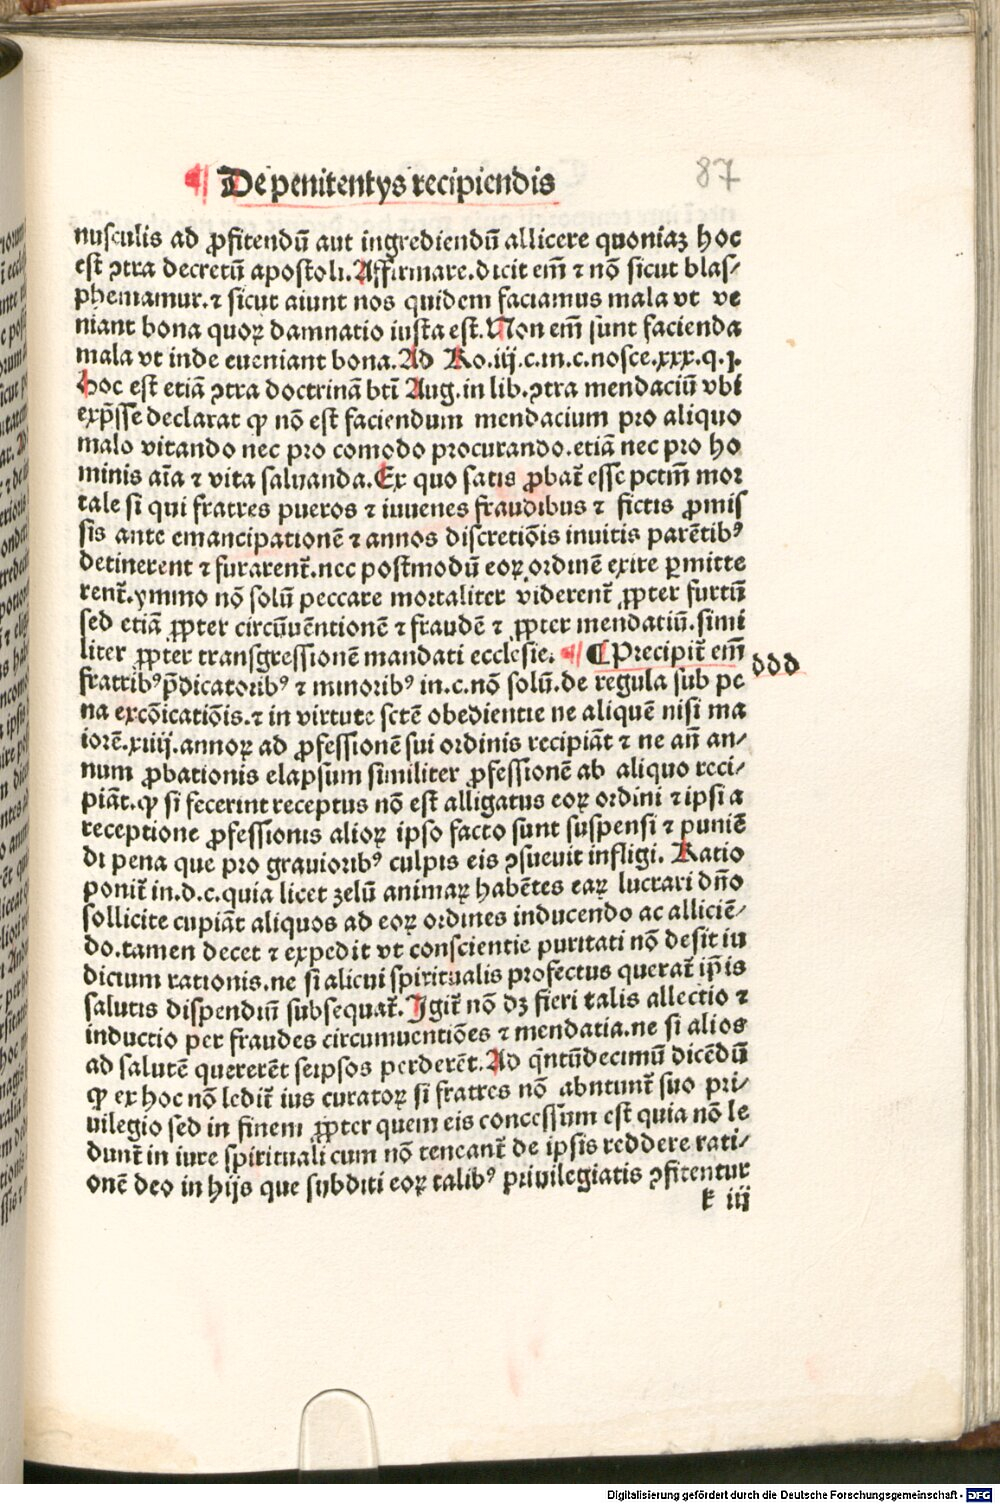 De penitentys recipiendis
87
nusculis ad ꝓfitendū aut ingrediendū allicere quoniaʒ hoc
est ꝯtra decretū apostoli. Affirmare. dicit em̄ ⁊ nō sicut blas⸗
phemamur. ⁊ sicut aiunt nos quidem faciamus mala vt ve
niant bona quoꝝ damnatio iusta est. Non em̄ sunt facienda
mala vt inde eueniant bona. Ad Ro. iij. c. in. c. nosce. xxx. q. j.
Hoc est etiā ꝯtra doctrinā bt̄i Aug. in lib. ꝯtra mendaciū vbi
exp̄sse declarat ꝙ nō est faciendum mendacium pro aliquo
malo vitando nec pro comodo procurando. etiā nec pro ho
minis aīa ⁊ vita saluanda. Ex quo satis ꝓbat̄ esse pctm̄ mor
tale si qui fratres pueros ⁊ iuuenes fraudibus ⁊ fictis ꝓmis
sis ante emancipationē ⁊ annos discretiōis inuitis parētibꝰ
detinerent ⁊ furarent̄. nec postmodū eoꝝ ordinē exire ꝑmitte
rent̄. ymmo nō solū peccare mortaliter viderent̄ ꝓpter furtū
sed etiā ꝓpter circūuētionē ⁊ fraudē ⁊ ꝓpter mendatiū. simi
liter ꝓpter transgressionē mandati ecclesie. ¶ Precipit̄ em̄
ddd
fratribꝰ p̄dicatoribꝰ ⁊ minoribꝰ in. c. nō solū. de regula sub pe
na excōicatiōis. ⁊ in virtute sctē obedientie ne aliquē nisi ma
iorē. xiiij. annoꝝ ad ꝓfessionē sui ordinis recipiāt ⁊ ne an̄ an⸗
num ꝓbationis elapsum similiter ꝓfessionē ab aliquo reci⸗
piāt. ꝙ si fecerint receptus nō est alligatus eoꝝ ordini ⁊ ipsi a
receptione ꝓfessionis alioꝝ ipso facto sunt suspensi ⁊ puniē
di pena que pro grauioribꝰ culpis eis ꝯsueuit infligi. Ratio
ponit̄ in. d. c. quia licet zelū animaꝝ habētes eaꝝ lucrari dn̄o
sollicite cupiāt aliquos ad eoꝝ ordines inducendo ac alliciē⸗
do. tamen decet ⁊ expedit vt conscientie puritati nō desit iu
dicium rationis. ne si alicui spiritualis profectus querat̄ ip̄is
salutis dispendiū subsequat̄. Igit̄ nō dʒ fieri talis allectio ⁊
inductio per fraudes circumuentiōes ⁊ mendatia. ne si alios
ad salutē quererēt seipsos perderēt. Ad q̄ntūdecimū dicēdū
ꝙ ex hoc nō ledit̄ ius curatoꝝ si fratres nō abutunt̄ suo pri⸗
uilegio sed in finem ꝓpter quem eis concessum est quia nō le
dunt̄ in iure spirituali cum nō teneant̄ de ipsis reddere rati⸗
onē deo in hijs que subditi eoꝝ talibꝰ priuilegiatis ꝯfitentur
k iij
Digitalisierung gefördert durch die Deutsche Forschungsgemeinschaft - DFG